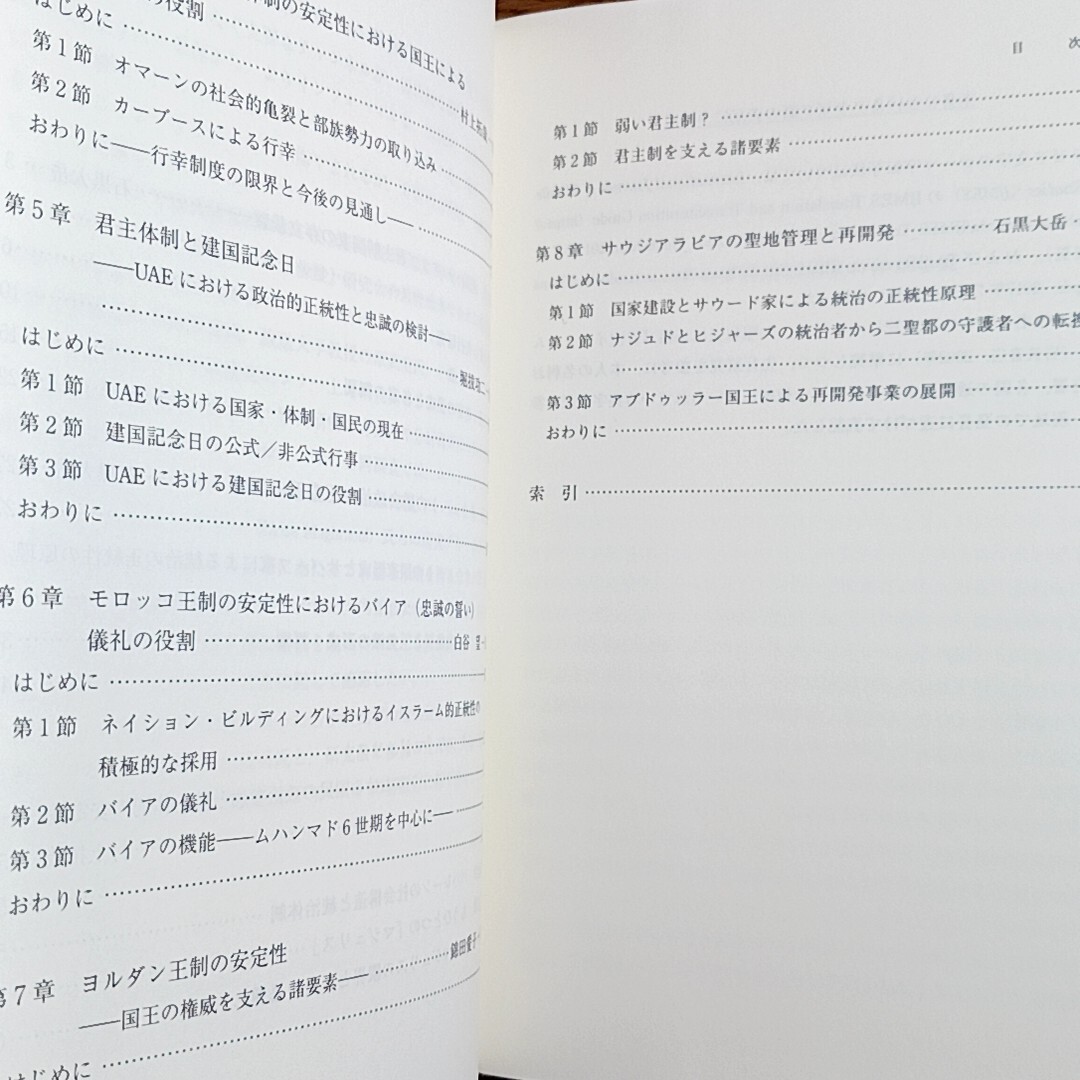 制の安定性における国王による
の役割
はじめに
第1節 オマーンの社会的亀裂と部族勢力の取り込み
第2節 カーブースによる行幸
おわりに――行幸制度の限界と今後の見通し――
第5章 君主体制と建国記念日
――UAEにおける政治的正統性と忠誠の検討――
はじめに
第1節 UAEにおける国家・体制・国民の現在
第2節 建国記念日の公式／非公式行事
第3節 UAEにおける建国記念日の役割
おわりに
第6章 モロッコ王制の安定性におけるバイア（忠誠の誓い）
儀礼の役割 白谷
はじめに
第1節 ネイション・ビルディングにおけるイスラーム的正統性の
積極的な採用
第2節 バイアの儀礼
第3節 バイアの機能――ムハンマド6世期を中心に――
おわりに
第7章 ヨルダン王制の安定性
――国王の権威を支える諸要素―― 錦田愛子
はじめに
目 次
第1節 弱い君主制？
第2節 君主制を支える諸要素
おわりに
第8章 サウジアラビアの聖地管理と再開発 石黒大岳
はじめに
第1節 国家建設とサウード家による統治の正統性原理
第2節 ナジュドとヒジャーズの統治者から二聖都の守護者への転換
第3節 アブドゥッラー国王による再開発事業の展開
おわりに
索 引